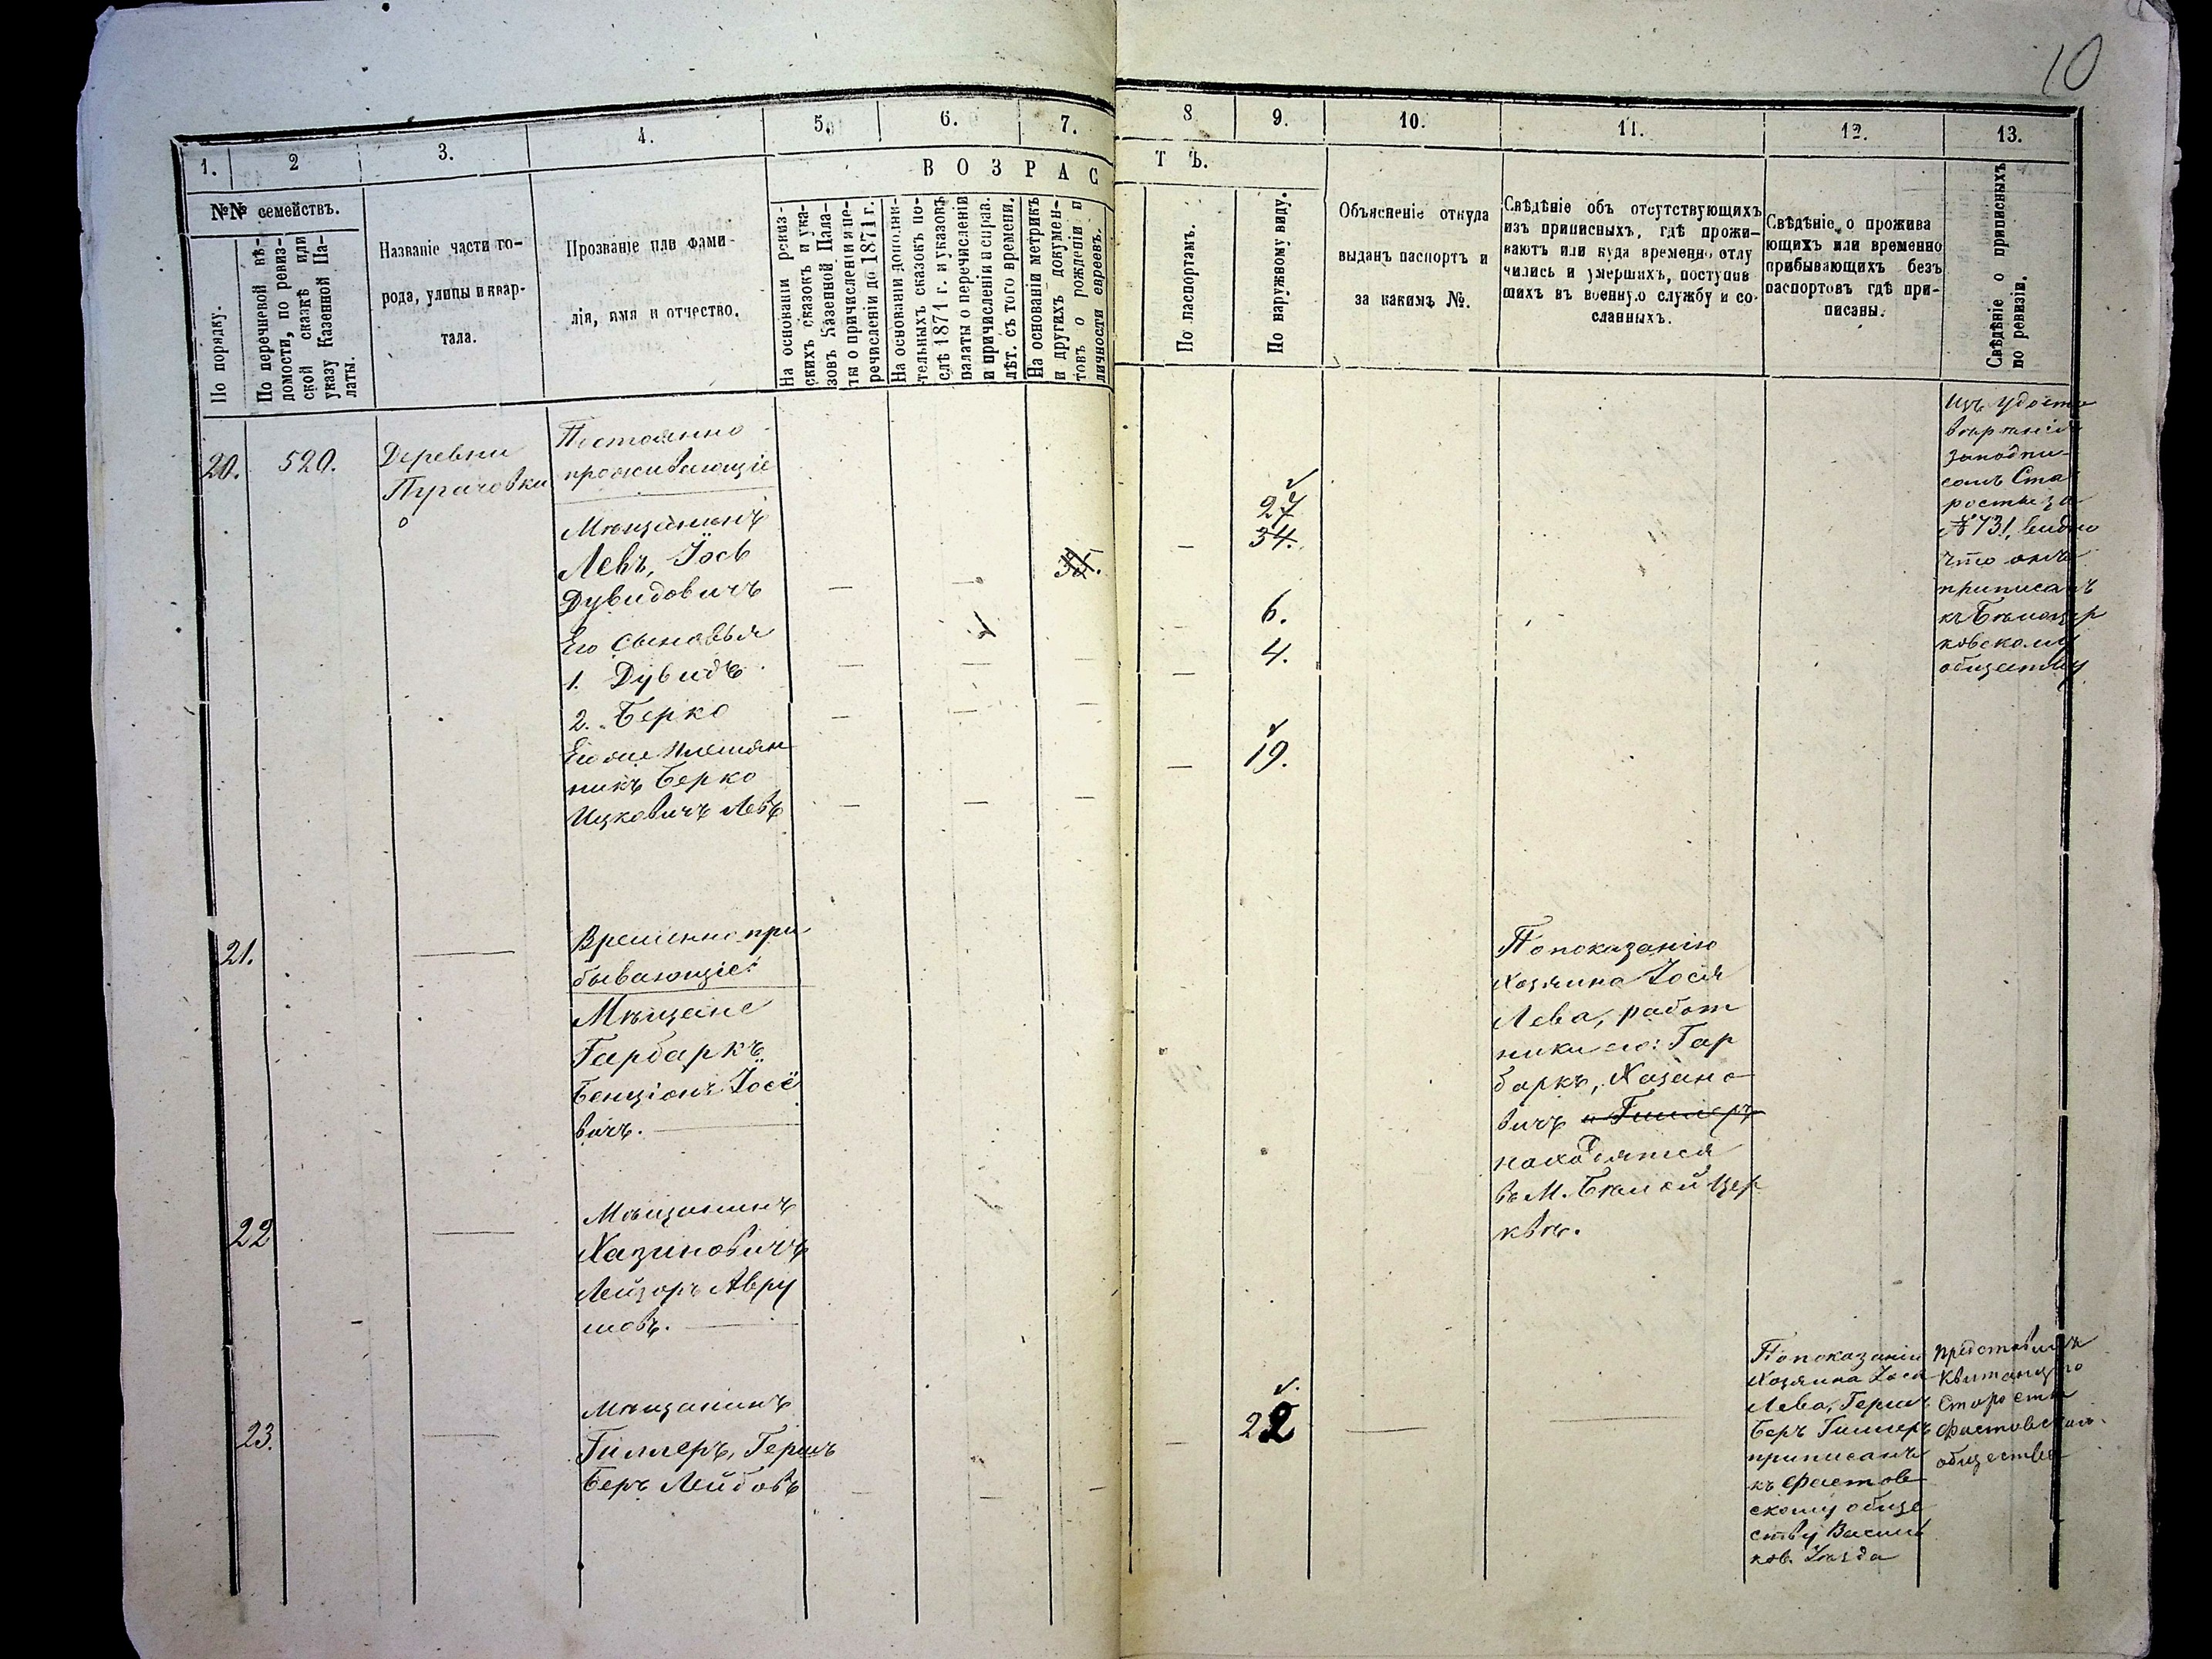 10
1.
2
3.
4.
5.
6.
7.
8
9.
10.
11.
12.
13.
ВОЗРАС
ТЪ.
№№ семействъ.
По порядку.
По перечневой вѣ-
домости, по ревиз-
ской сказкѣ или
указу Казенной Па-
латы.
Названіе части го-
рода, улицы и квар-
тала.
Прозваніе или фами-
лія, имя и отчество.
На основаніи ревиз-
скихъ сказокъ и ука-
зовъ Казенной Пала-
ты о причисленіи и пе-
речисленіи до 1871 г.
На основаніи дополни-
тельныхъ сказокъ по-
слѣ 1871 г. и указовъ
палаты о перечисленіи
и причисленіи и справ.
лѣт. съ того времени.
На основаніи метрикъ
и другихъ докумен-
товъ о рожденіи и
личности евреевъ.
По паспортамъ.
По наружному виду.
Объясненіе откуда
выданъ паспортъ и
за какимъ №.
Свѣдѣніе объ отсутствующихъ
изъ приписныхъ, гдѣ прожи-
ваютъ или куда временно отлу
чились и умершихъ, поступив
шихъ въ военную службу и со-
сланныхъ.
Свѣдѣніе о прожива
ющихъ или временно
прибывающихъ безъ
паспортовъ гдѣ при-
писаны.
Свѣдѣніе о приписныхъ
по ревизіи.
20.
520.
Деревни
Постоянно
проживающіе
Мѣщанинъ
Левъ, Іось
Дувидовичъ
27
34.
Его сыновья
1. Дувидъ
6.
2. Берко
4.
Его же племян
никъ Берко
Ицковичъ Левъ
19.
Изъ удосто
вѣренія
за подпи-
сомъ Ста
росты за
№ 731, видно
что онъ
приписанъ
къ Бѣлоцер
ковскому
обществу
21.
Временно при
бывающіе:
Мѣщане
Гарбаркъ
Бенціонъ Іосё
вичъ.
По показанію
хозяина Іося
Лева, работ
ники его: Гар
баркъ, Хазано
вичъ и Гиллеръ
находятся
въ М. Бѣлой Цер
квѣ.
22
Мѣщанинъ
Хазиновичъ
Лейзоръ Авру
мовъ.
23.
Мѣщанинъ
Гиллеръ, Гершъ
Беръ Лейбовъ
22
По показанію
хозяина Іося
Лева, Гершъ
Беръ Гиллеръ
приписанъ
къ Фастов
скому обще
ству Василь
ков. Уѣзда
Представилъ
квитанцію
Старосты
Фастовскаго
общества